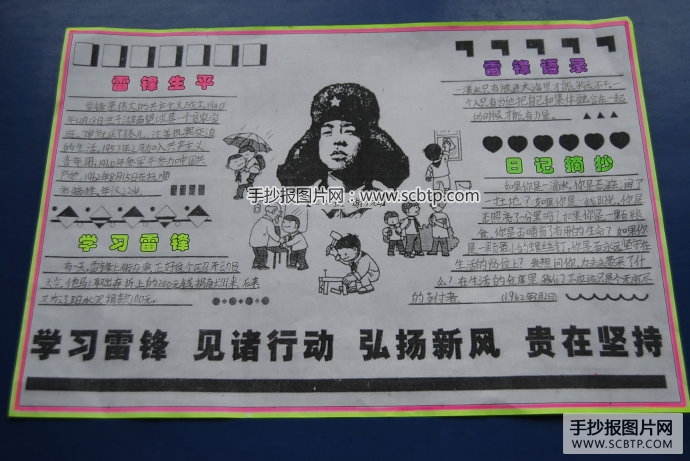 雷锋生平
雷锋是伟大的共产主义战士,1940
年12月18日生于湖南望城县一个贫农家
庭
的生活。1957年2月加入共产主义
青年团,1960年参军并参加中国共
产党,1962年8月15日
年仅22岁。
学习雷锋
大会,他马上取出存折上的200元钱
又为辽阳水灾捐款100元。
雷锋语录
一滴水只有放进大海里才能永远不干,一
个人只有当他把自己和集体融合在一起
的时候才能有力量。
日记摘抄
如果你是一滴水,你是否滋润了
一寸土地?如果你是一线阳光,你是
否照亮了一分黑暗?如果你是一颗粮
食,你是否哺育了有用的生命?如果你
是一颗最小的螺丝钉,你是否永远坚守在
生活的岗位上?
么?在生活的仓库里,我们不应该只是个无穷尽
的支付者。
学习雷锋 见诸行动 弘扬新风 贵在坚持
手抄报图片网:www.scbtp.com
手抄报图片网
WWW.SCBTP.COM